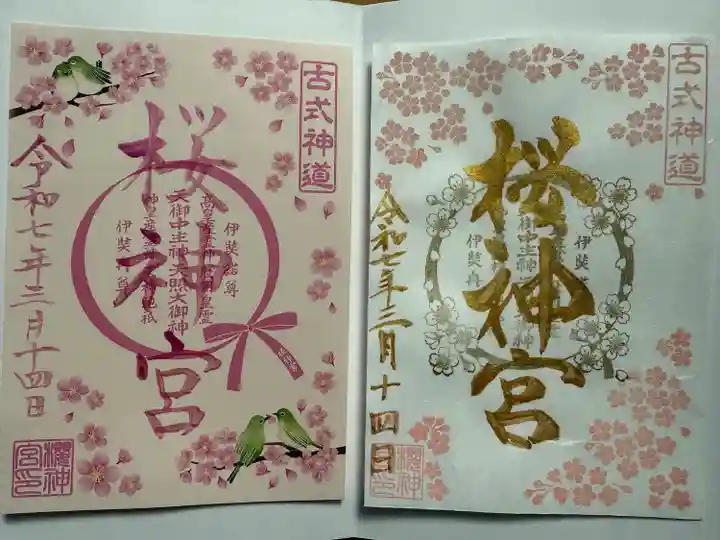 古式神道
桜神宮
伊弉諾尊
高皇産霊神歴朝皇霊
天御中主神天照大御神
神皇産霊神
伊弉冉尊
令和七年三月十四日
櫻神宮印
古式神道
桜神宮
伊弉
天御中主神
伊弉冉
令和七年三月十四日
櫻神宮印